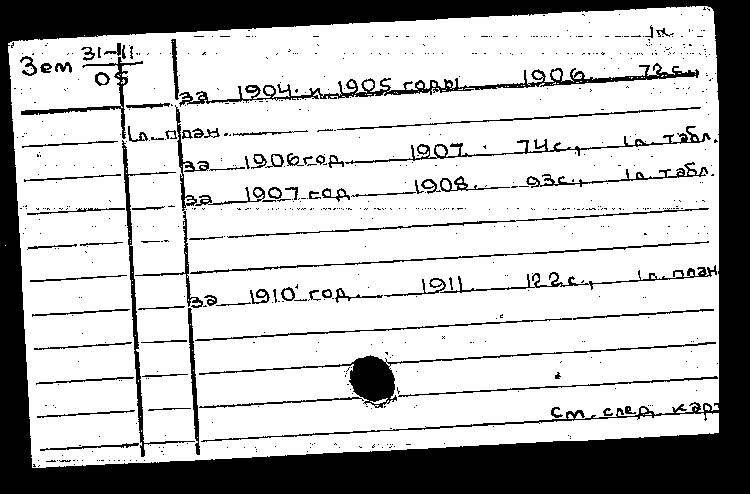 1к
Зем 31-11
05
за 1904 и 1905 годы. 1906. 72с.,
1л. план.
за 1906 год. 1907. 74с., 1л. табл.
за 1907 год. 1908. 93с., 1л. табл.
за 1910 год. 1911. 122с., 1л. план.
См. след. карт